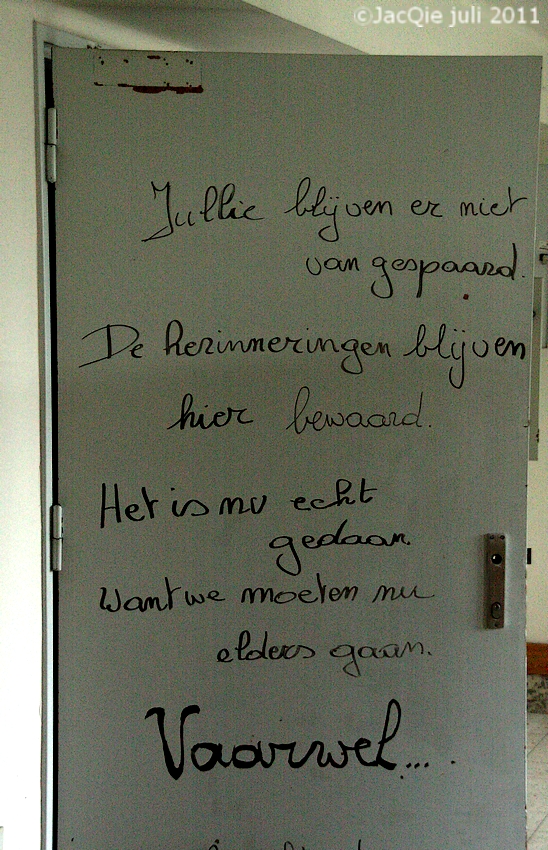 ©JacQie juli 2011
Jullie blijven er niet
van gespaard.
De herinneringen blijven
hier bewaard.
Het is nu echt
gedaan.
Want we moeten nu
elders gaan.
Vaarwel....